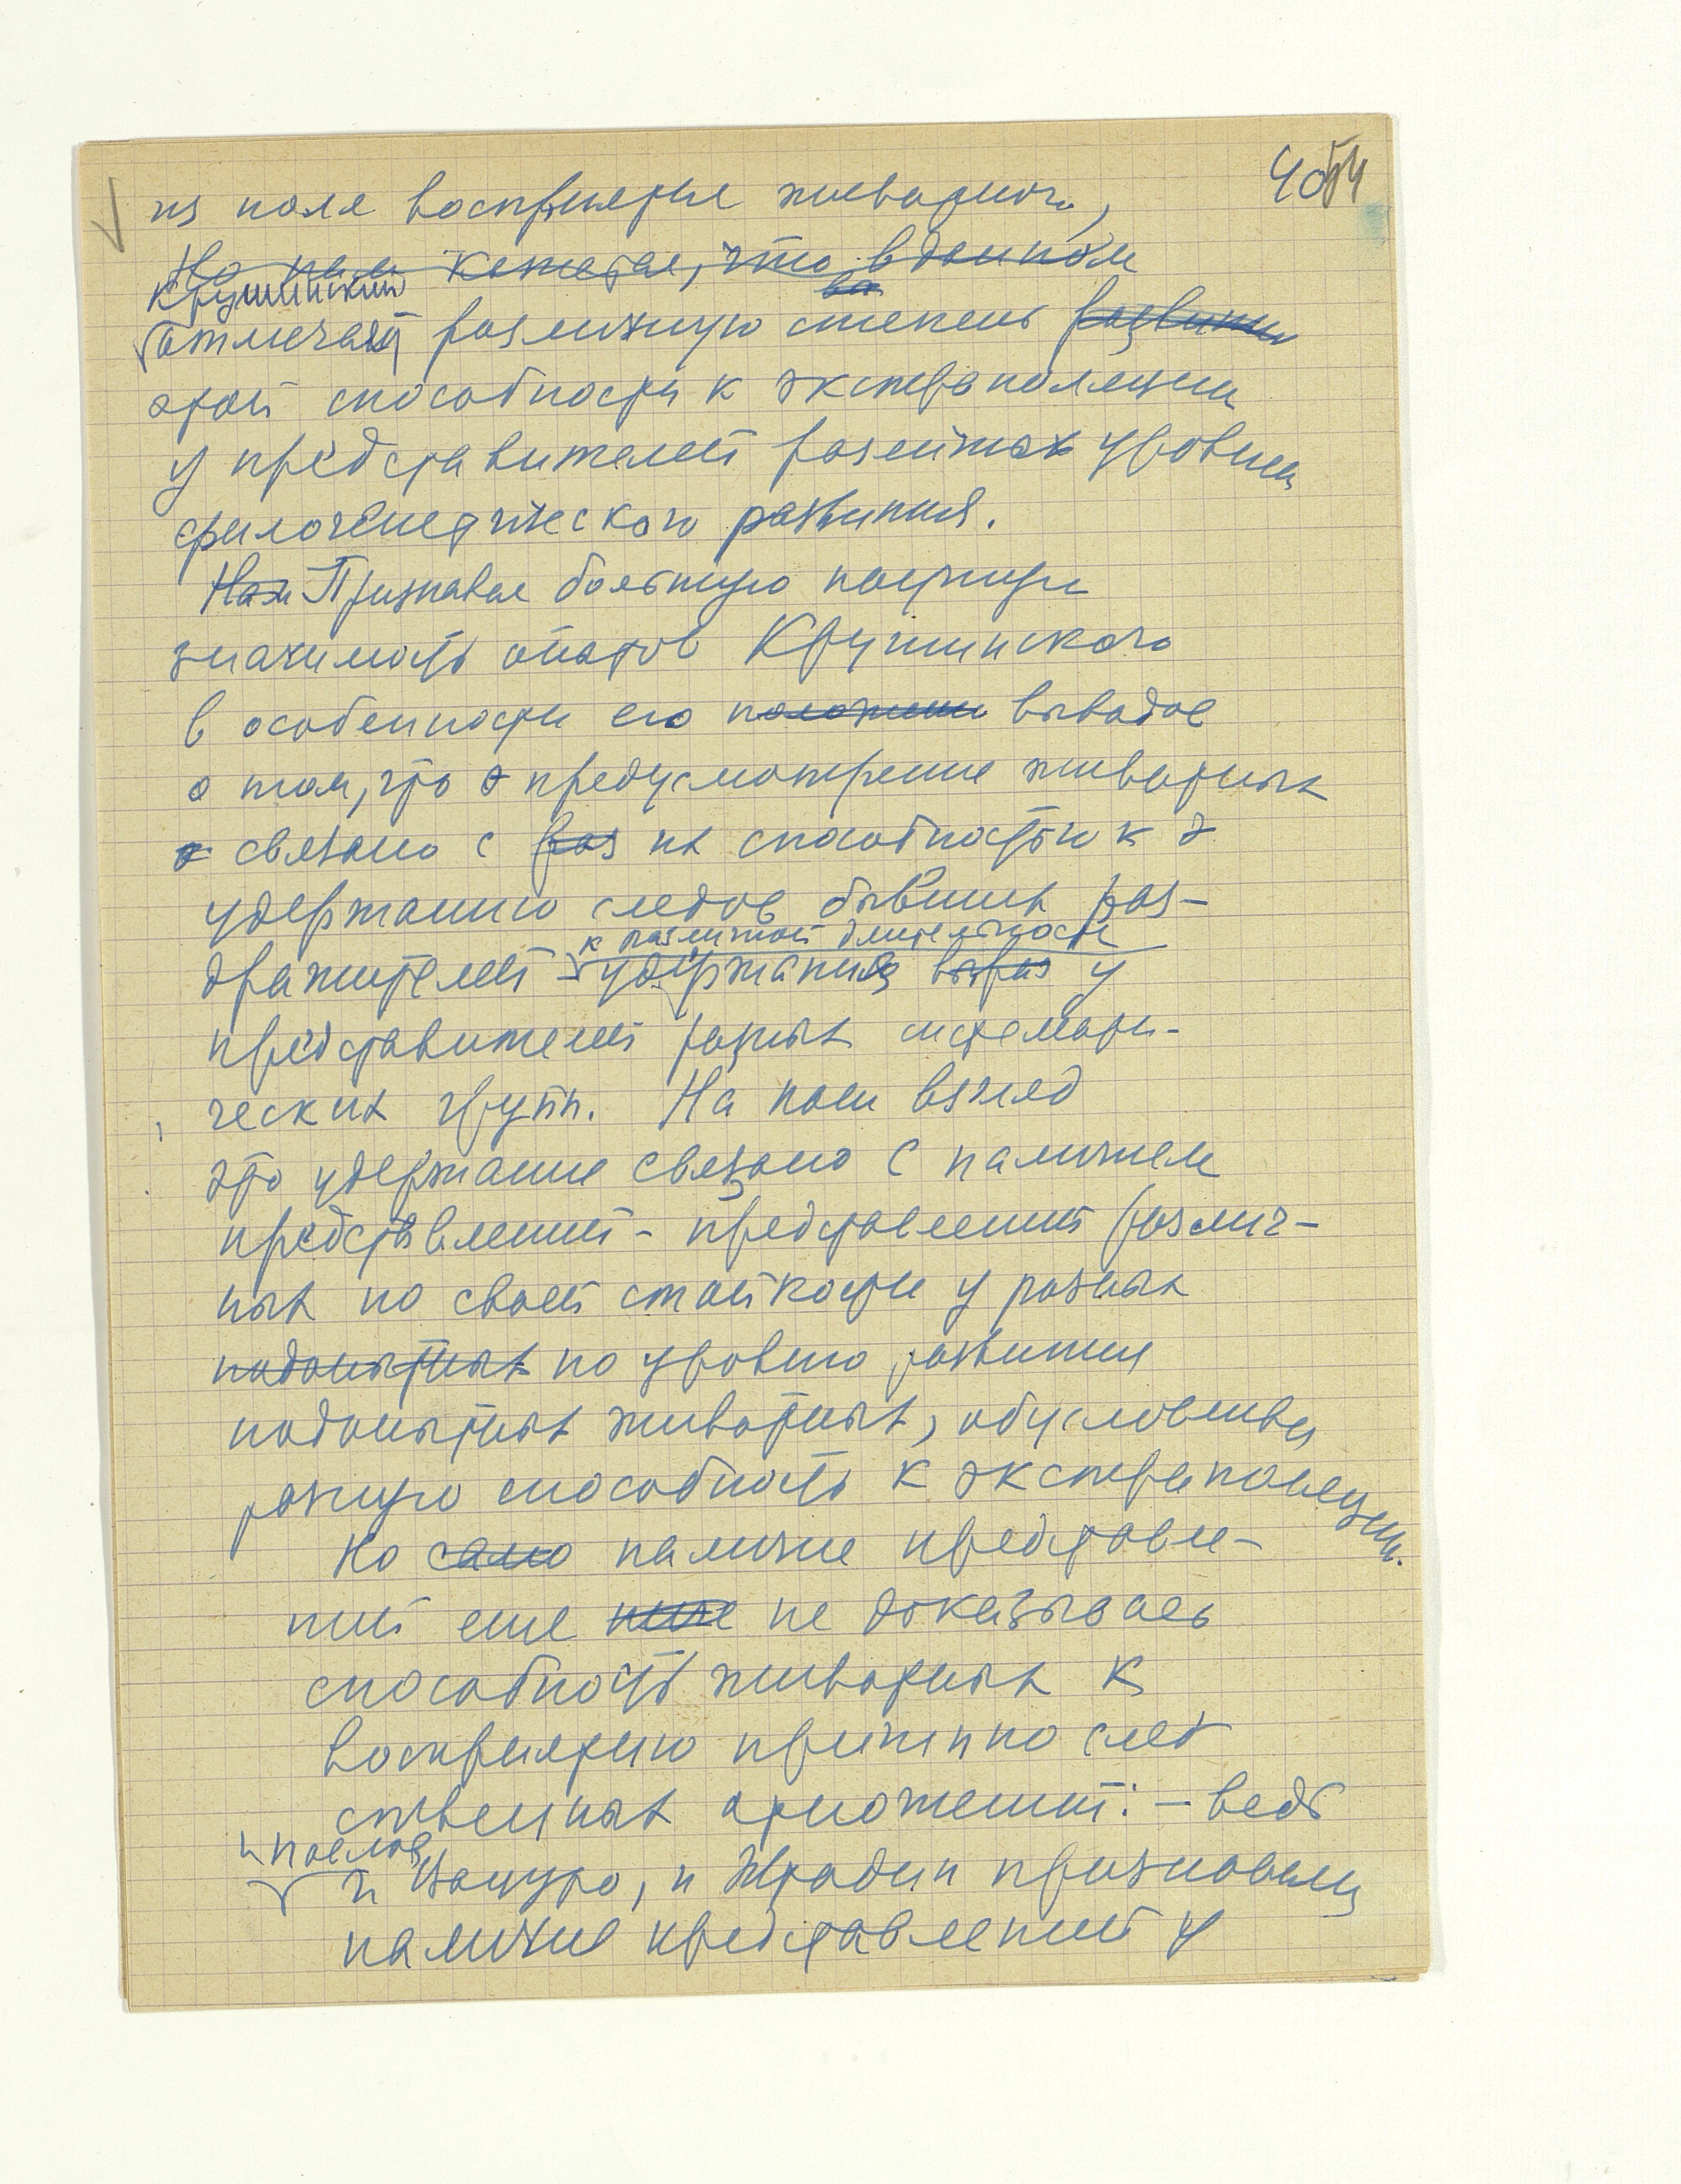 из поля восприятия животного,
Но нам кажется, что в данном
Крушинский
отмечает различную степень развития
этой способности к экстраполяции
у представителей различных уровней
филогенетического развития.
Нам Признавая большую научную
значимость опытов Крушинского
в особенности его положение выводов
о том, что предусмотрение животных
связано с раз их способностью к
удержанию следов бывших раз-
к различной длительности
дражителей удержания у
представителей разных система ти-
ческих групп. На наш взгляд
это удержание связано с наличием
представлений - представлений различ-
ных по своей стойкости у разных
подопытных по уровню развития
подопытных животных, обусловливая
разную способность к экстраполяции.
Но само наличие представле-
ний еще не доказывает
способность животных к
восприятию причинно след
ственных отношений: - ведь
и Павлов,
и Вацуро, и Журавин признавали
наличие представлений у